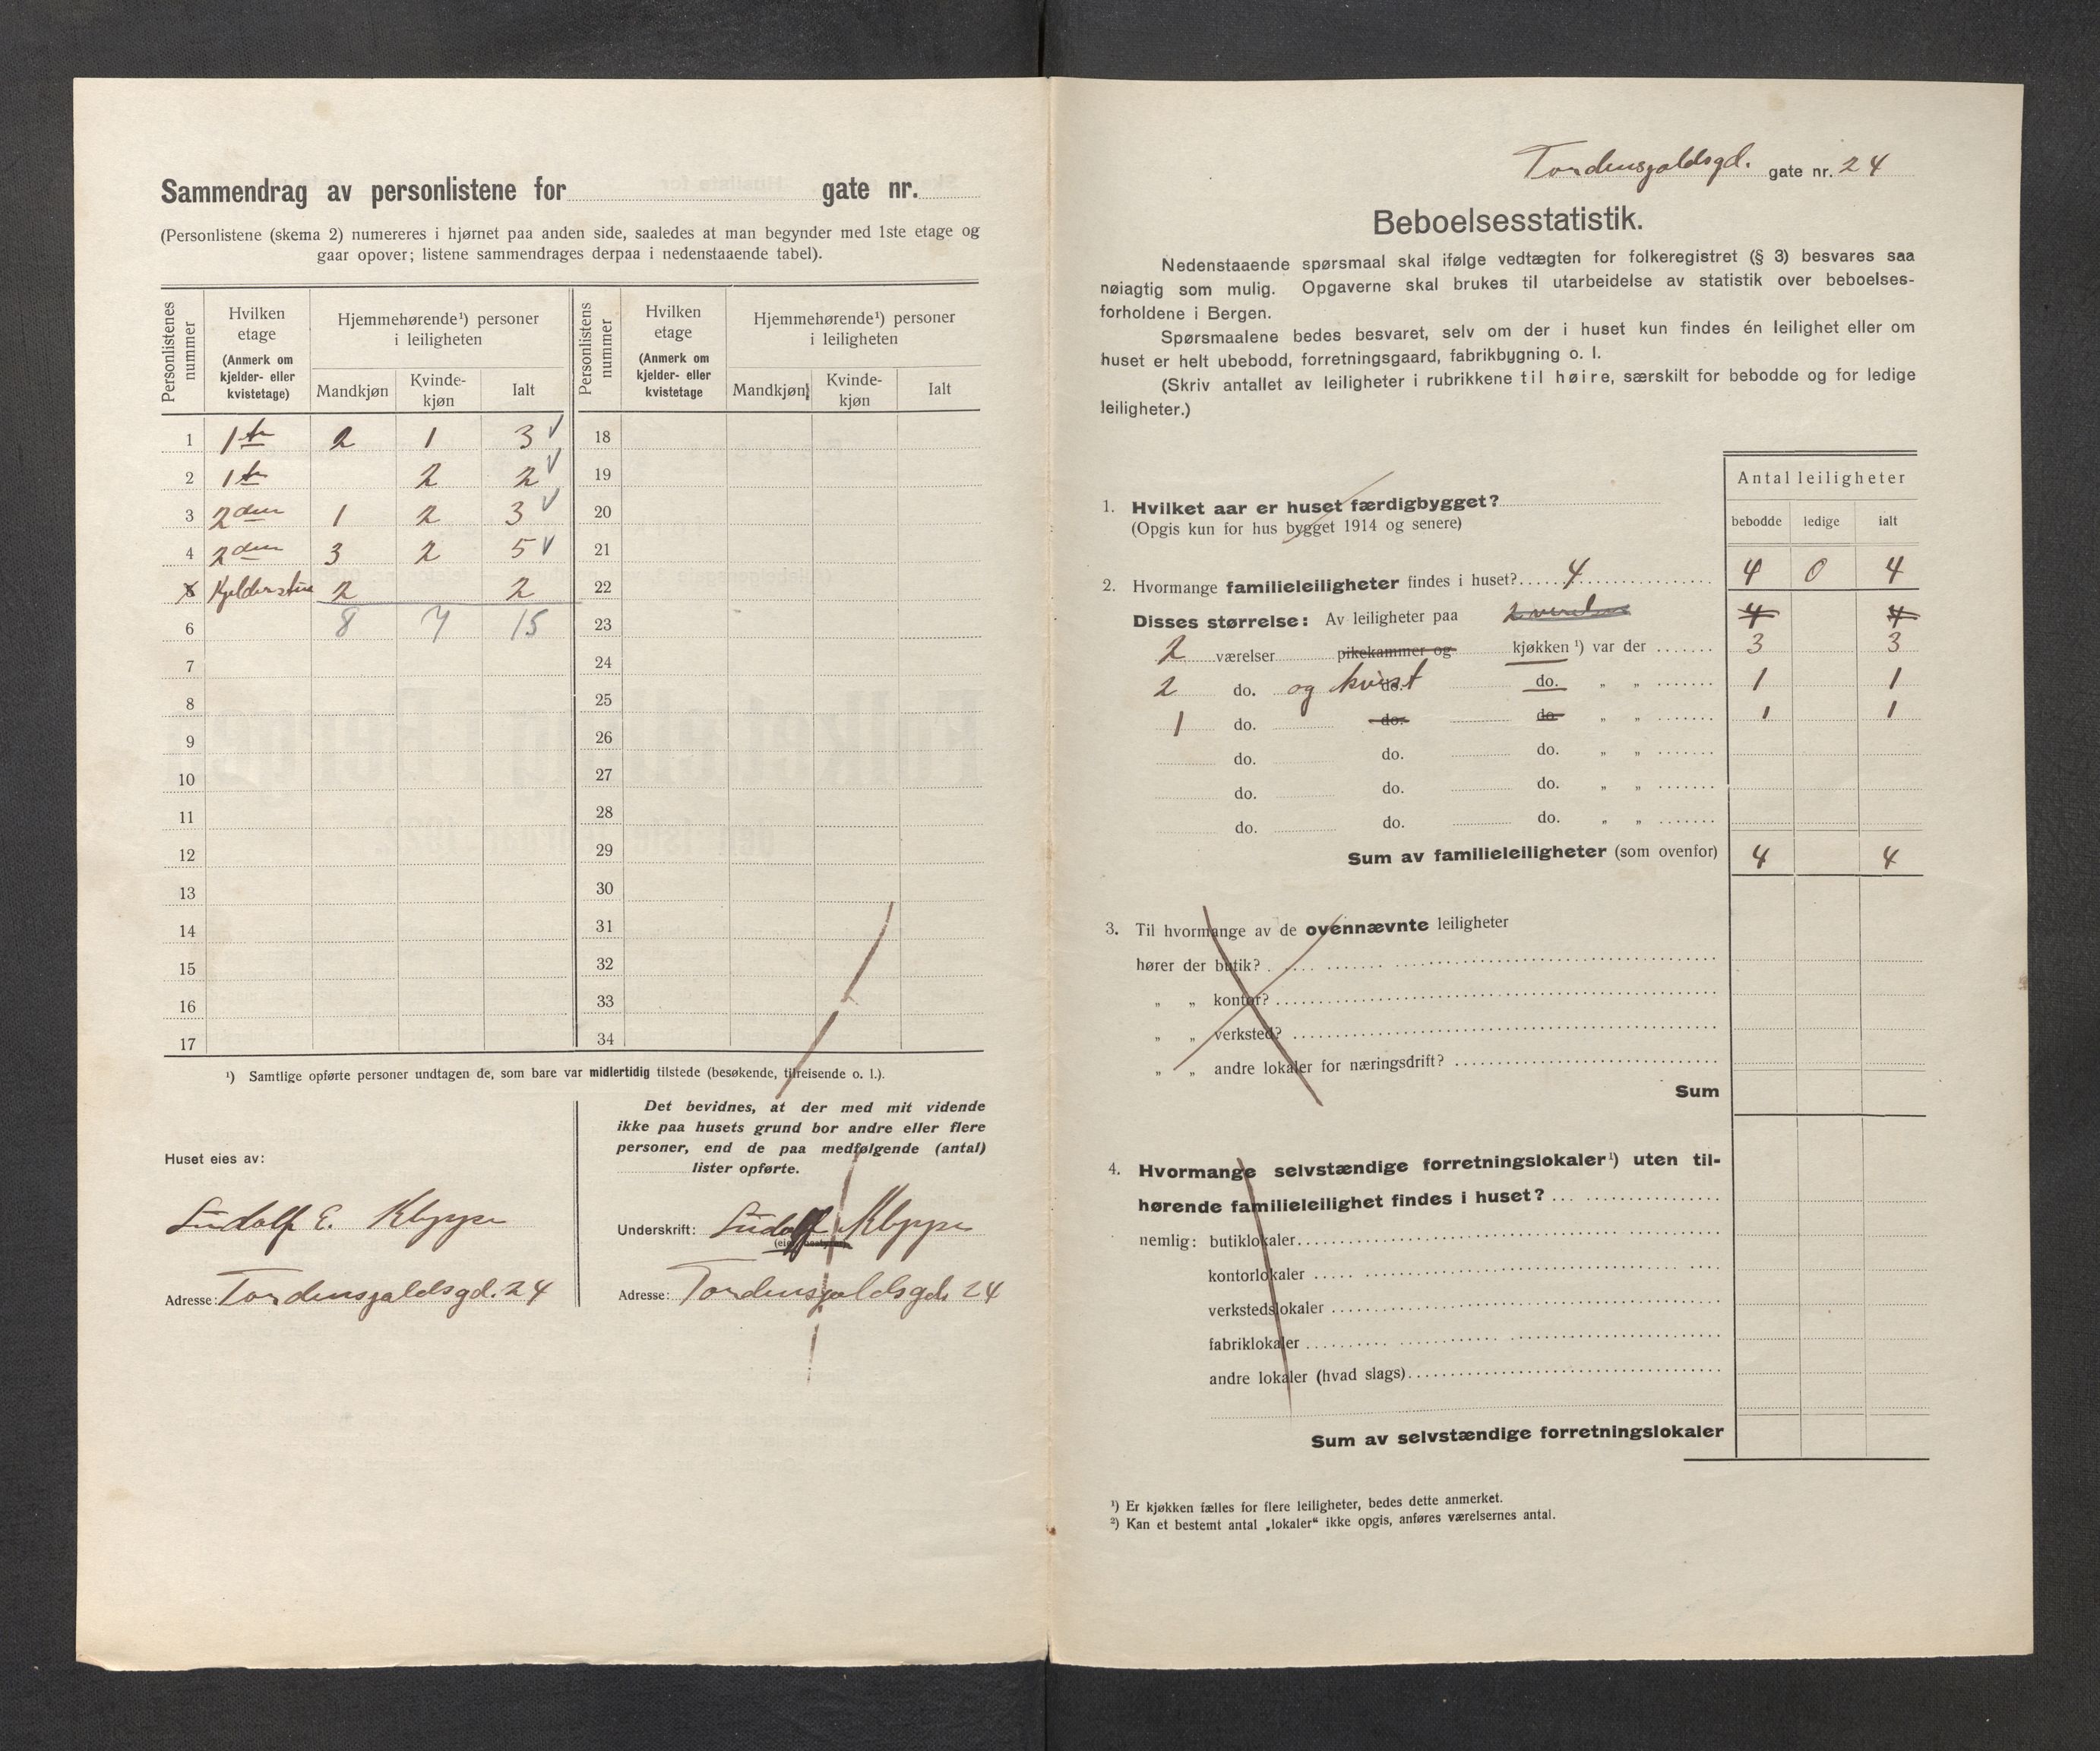 Sammendrag av personlistene for gate nr.
(Personlistene (skema 2) numereres i hjørnet paa anden side, saaledes at man begynder med 1ste etage og
gaar opover; listene sammendrages derpaa i nedenstaaende tabel).
Personlistenes nummer
Hvilken etage (Anmerk om kjelder- eller kvistetage)
Hjemmehørende¹) personer i leiligheten
Mandkjøn Kvinde-kjøn Ialt
Personlistens nummer
Hvilken etage (Anmerk om kjelder- eller kvistetage
Hjemmehørende¹) personer i leiligheten
Mandkjøn Kvinde-kjøn Ialt
1 1ste 2 1 3 √ 18
2 1ste 2 2 √ 19
3 2den 1 2 3 √ 20
4 2den 3 2 5 √ 21
Kjelderstue 2 2 22
6 8 7 15 23
7 24
8 25
9 26
10 27
11 28
12 29
13 30
14 31
15 32
16 33
17 34
¹) Samtlige opførte personer undtagen de, som bare var midlertidig tilstede (besøkende, tilreisende o. l.).
Huset eies av:
Ludolf E. Kleppe
Adresse: Tordensjoldsgd. 24
Det bevidnes, at der med mit vidende
ikke paa husets grund bor andre eller flere
personer, end de paa medfølgende (antal)
lister opførte.
Underskrift: Ludolf Kleppe
Adresse: Tordensjoldsgd. 24
Tordensjoldsgd. gate nr. 24
Beboelsesstatistik.
Nedenstaaende spørsmaal skal ifølge vedtægten for folkeregistret (§ 3) besvares saa
nøiagtig som mulig. Opgaverne skal brukes til utarbeidelse av statistik over beboelses-
forholdene i Bergen.
Spørsmaalene bedes besvaret, selv om der i huset kun findes én leilighet eller om
huset er helt ubebodd, forretningsgaard, fabrikbygning o. l.
(Skriv antallet av leiligheter i rubrikkene til høire, særskilt for bebodde og for ledige
leiligheter.)
Antal leiligheter
bebodde ledige ialt
1. Hvilket aar er huset færdigbygget?
(Opgis kun for hus bygget 1914 og senere)
2. Hvormange familieleiligheter findes i huset? 4 4 0 4
Disses størrelse: Av leiligheter paa 4 4
2 værelser pikekammer og kjøkken ¹) var der 3 3
2 do. og kvist do. do. „ „ 1 1
1 do. do. do. „ „ 1 1
do. do. do. „ „
do. do. do. „ „
do. do. do. „ „
Sum av familieleiligheter (som ovenfor) 4 4
3. Til hvormange av de ovennævnte leiligheter
hører der butik?
„ „ kontor?
„ „ verksted?
„ „ andre lokaler for næringsdrift?
Sum
4. Hvormange selvstændige forretningslokaler¹) uten til-
hørende familieleilighet findes i huset?
nemlig: butiklokaler
kontorlokaler
verkstedslokaler
fabriklokaler
andre lokaler (hvad slags)
Sum av selvstændige forretningslokaler
¹) Er kjøkken fælles for flere leiligheter, bedes dette anmerket.
²) Kan et bestemt antal „lokaler“ ikke opgis, anføres værelsernes antal.